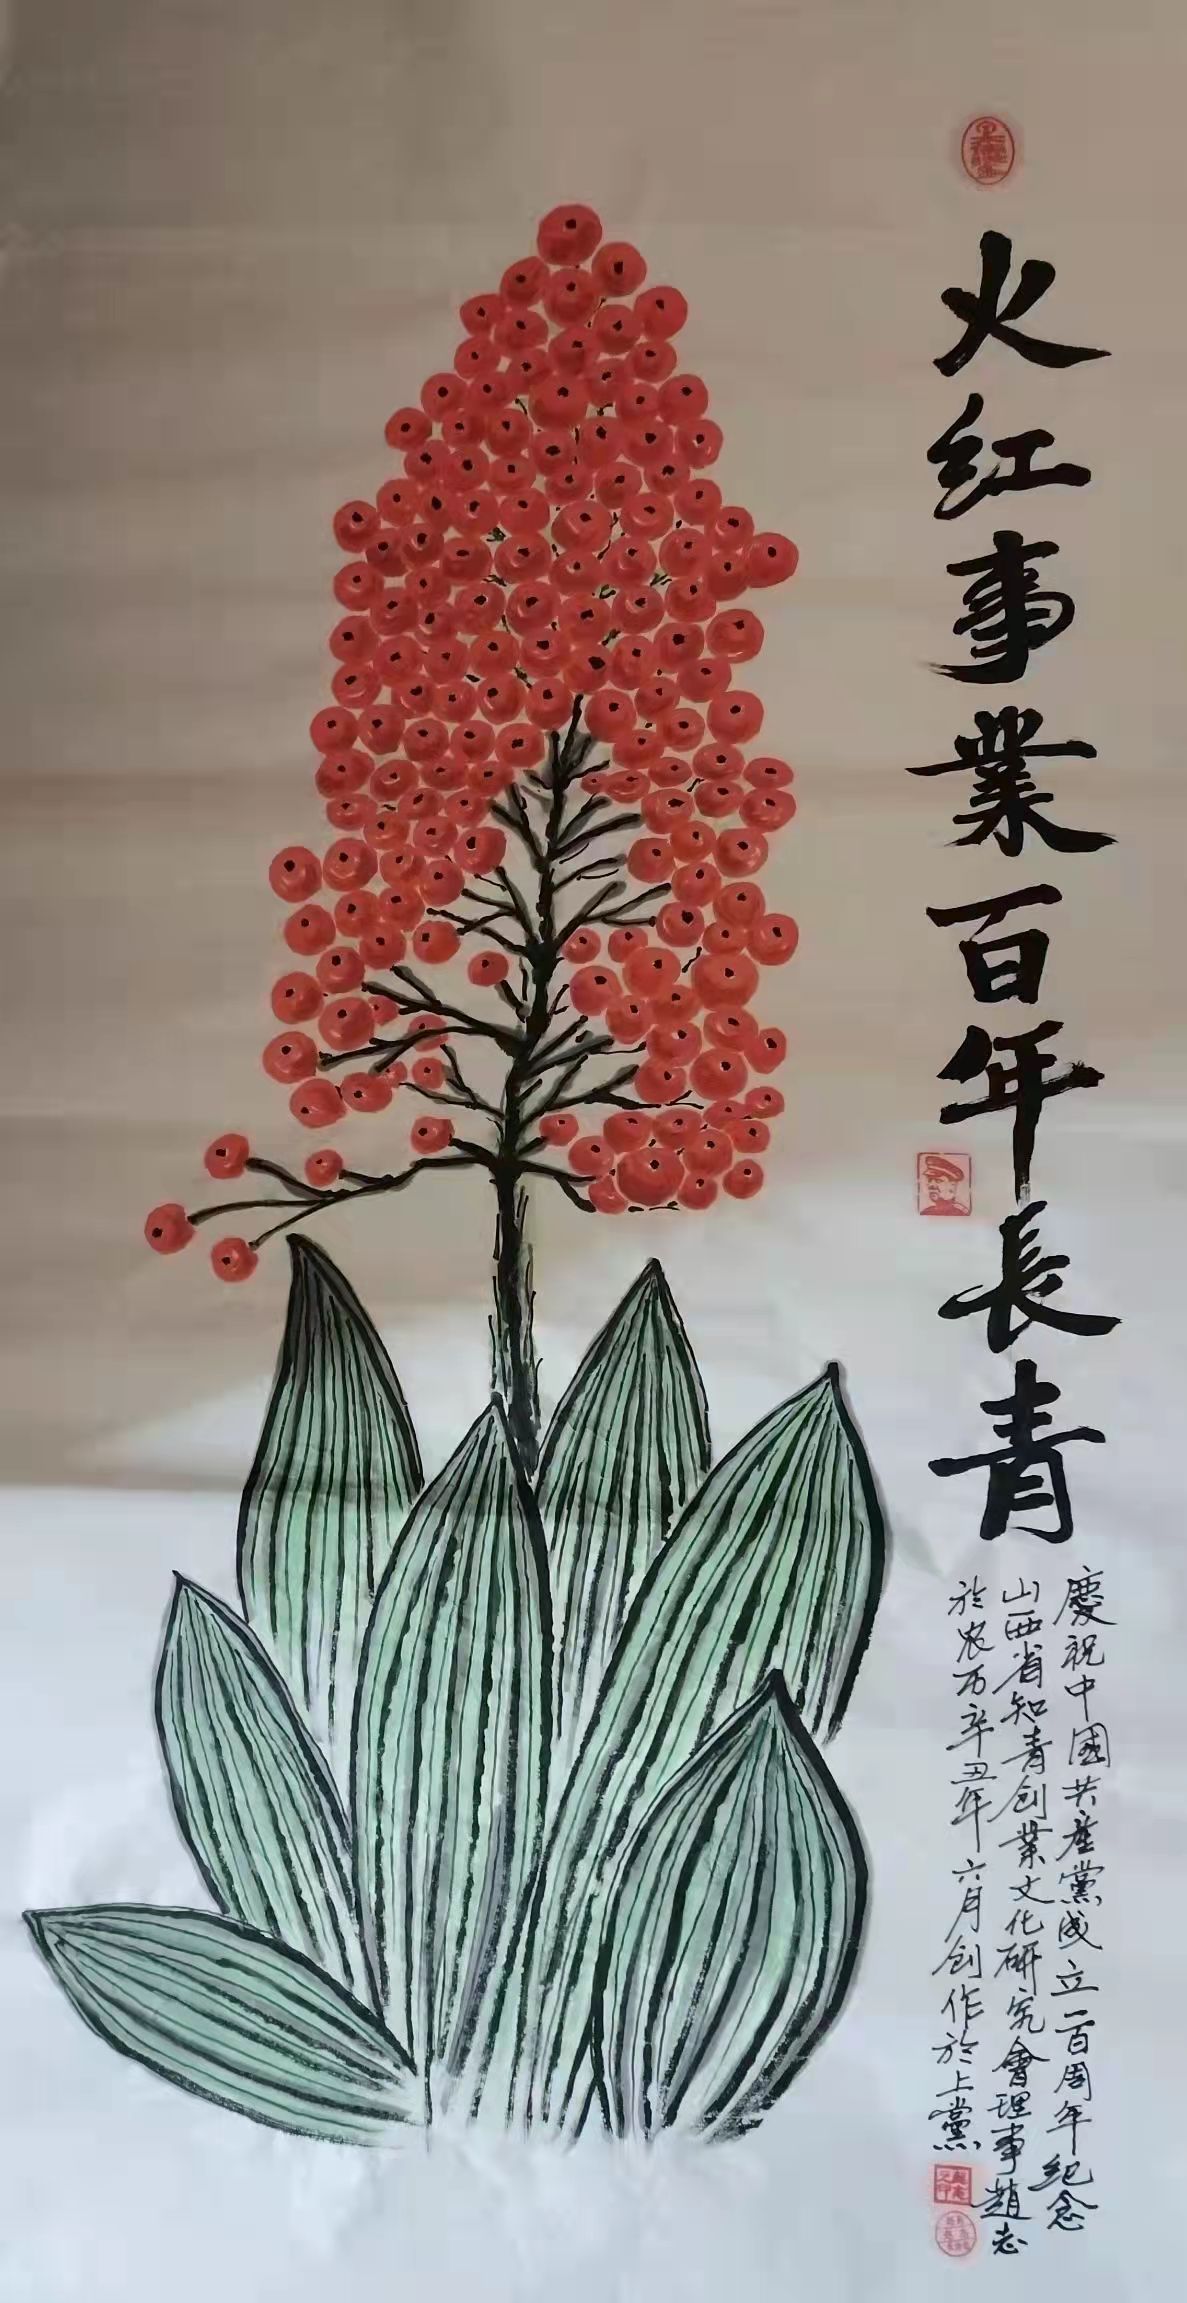 火红事業百年長青
慶祝中國共產黨成立一百周年纪念
山西省知青创業文化研究會理事趙志
於农历辛丑年六月创作於上黨